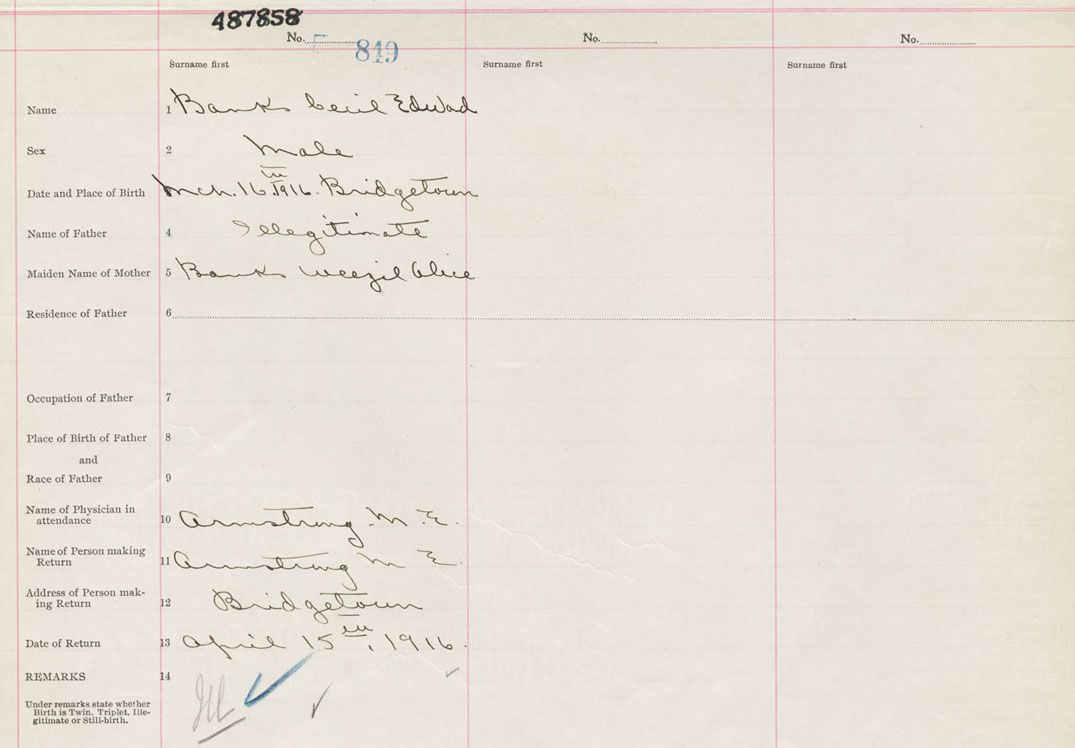 487858
No. 849
No.
No.
Surname first
Surname first
Surname first
Name 1 Banks Cecil Edwad
Sex 2 Male
Date and Place of Birth Mch. 16th 1916. Bridgetown
Name of Father 4 Illegitimate
Maiden Name of Mother 5 Banks Weezil Alice
Residence of Father 6
Occupation of Father 7
Place of Birth of Father 8
and
Race of Father 9
Name of Physician in
attendance 10 Armstrong M. E.
Name of Person making
Return 11 Armstrong M E.
Address of Person mak-
ing Return 12 Bridgetown
Date of Return 13 April 15th, 1916.
REMARKS 14
Ill
Under remarks state whether
Birth is Twin, Triplet, Ille-
gitimate or Still-birth.